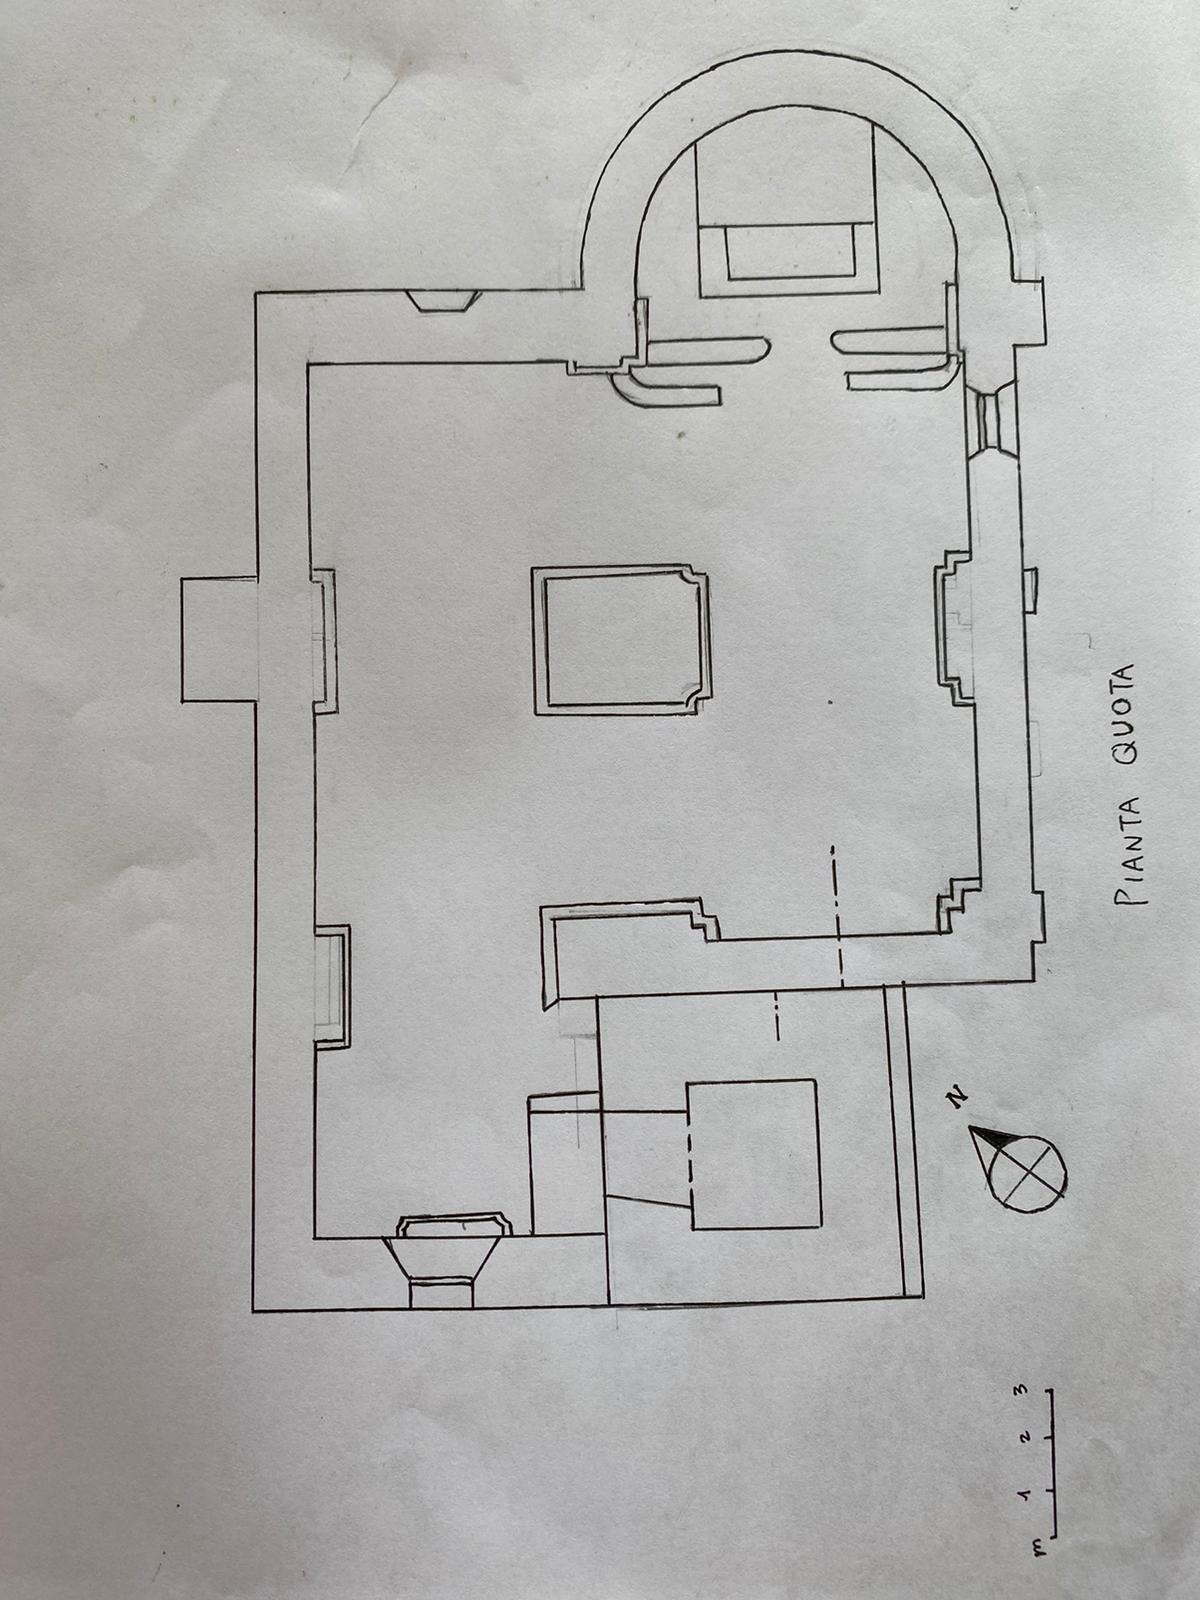 PIANTA QUOTA
N
m 1 2 3